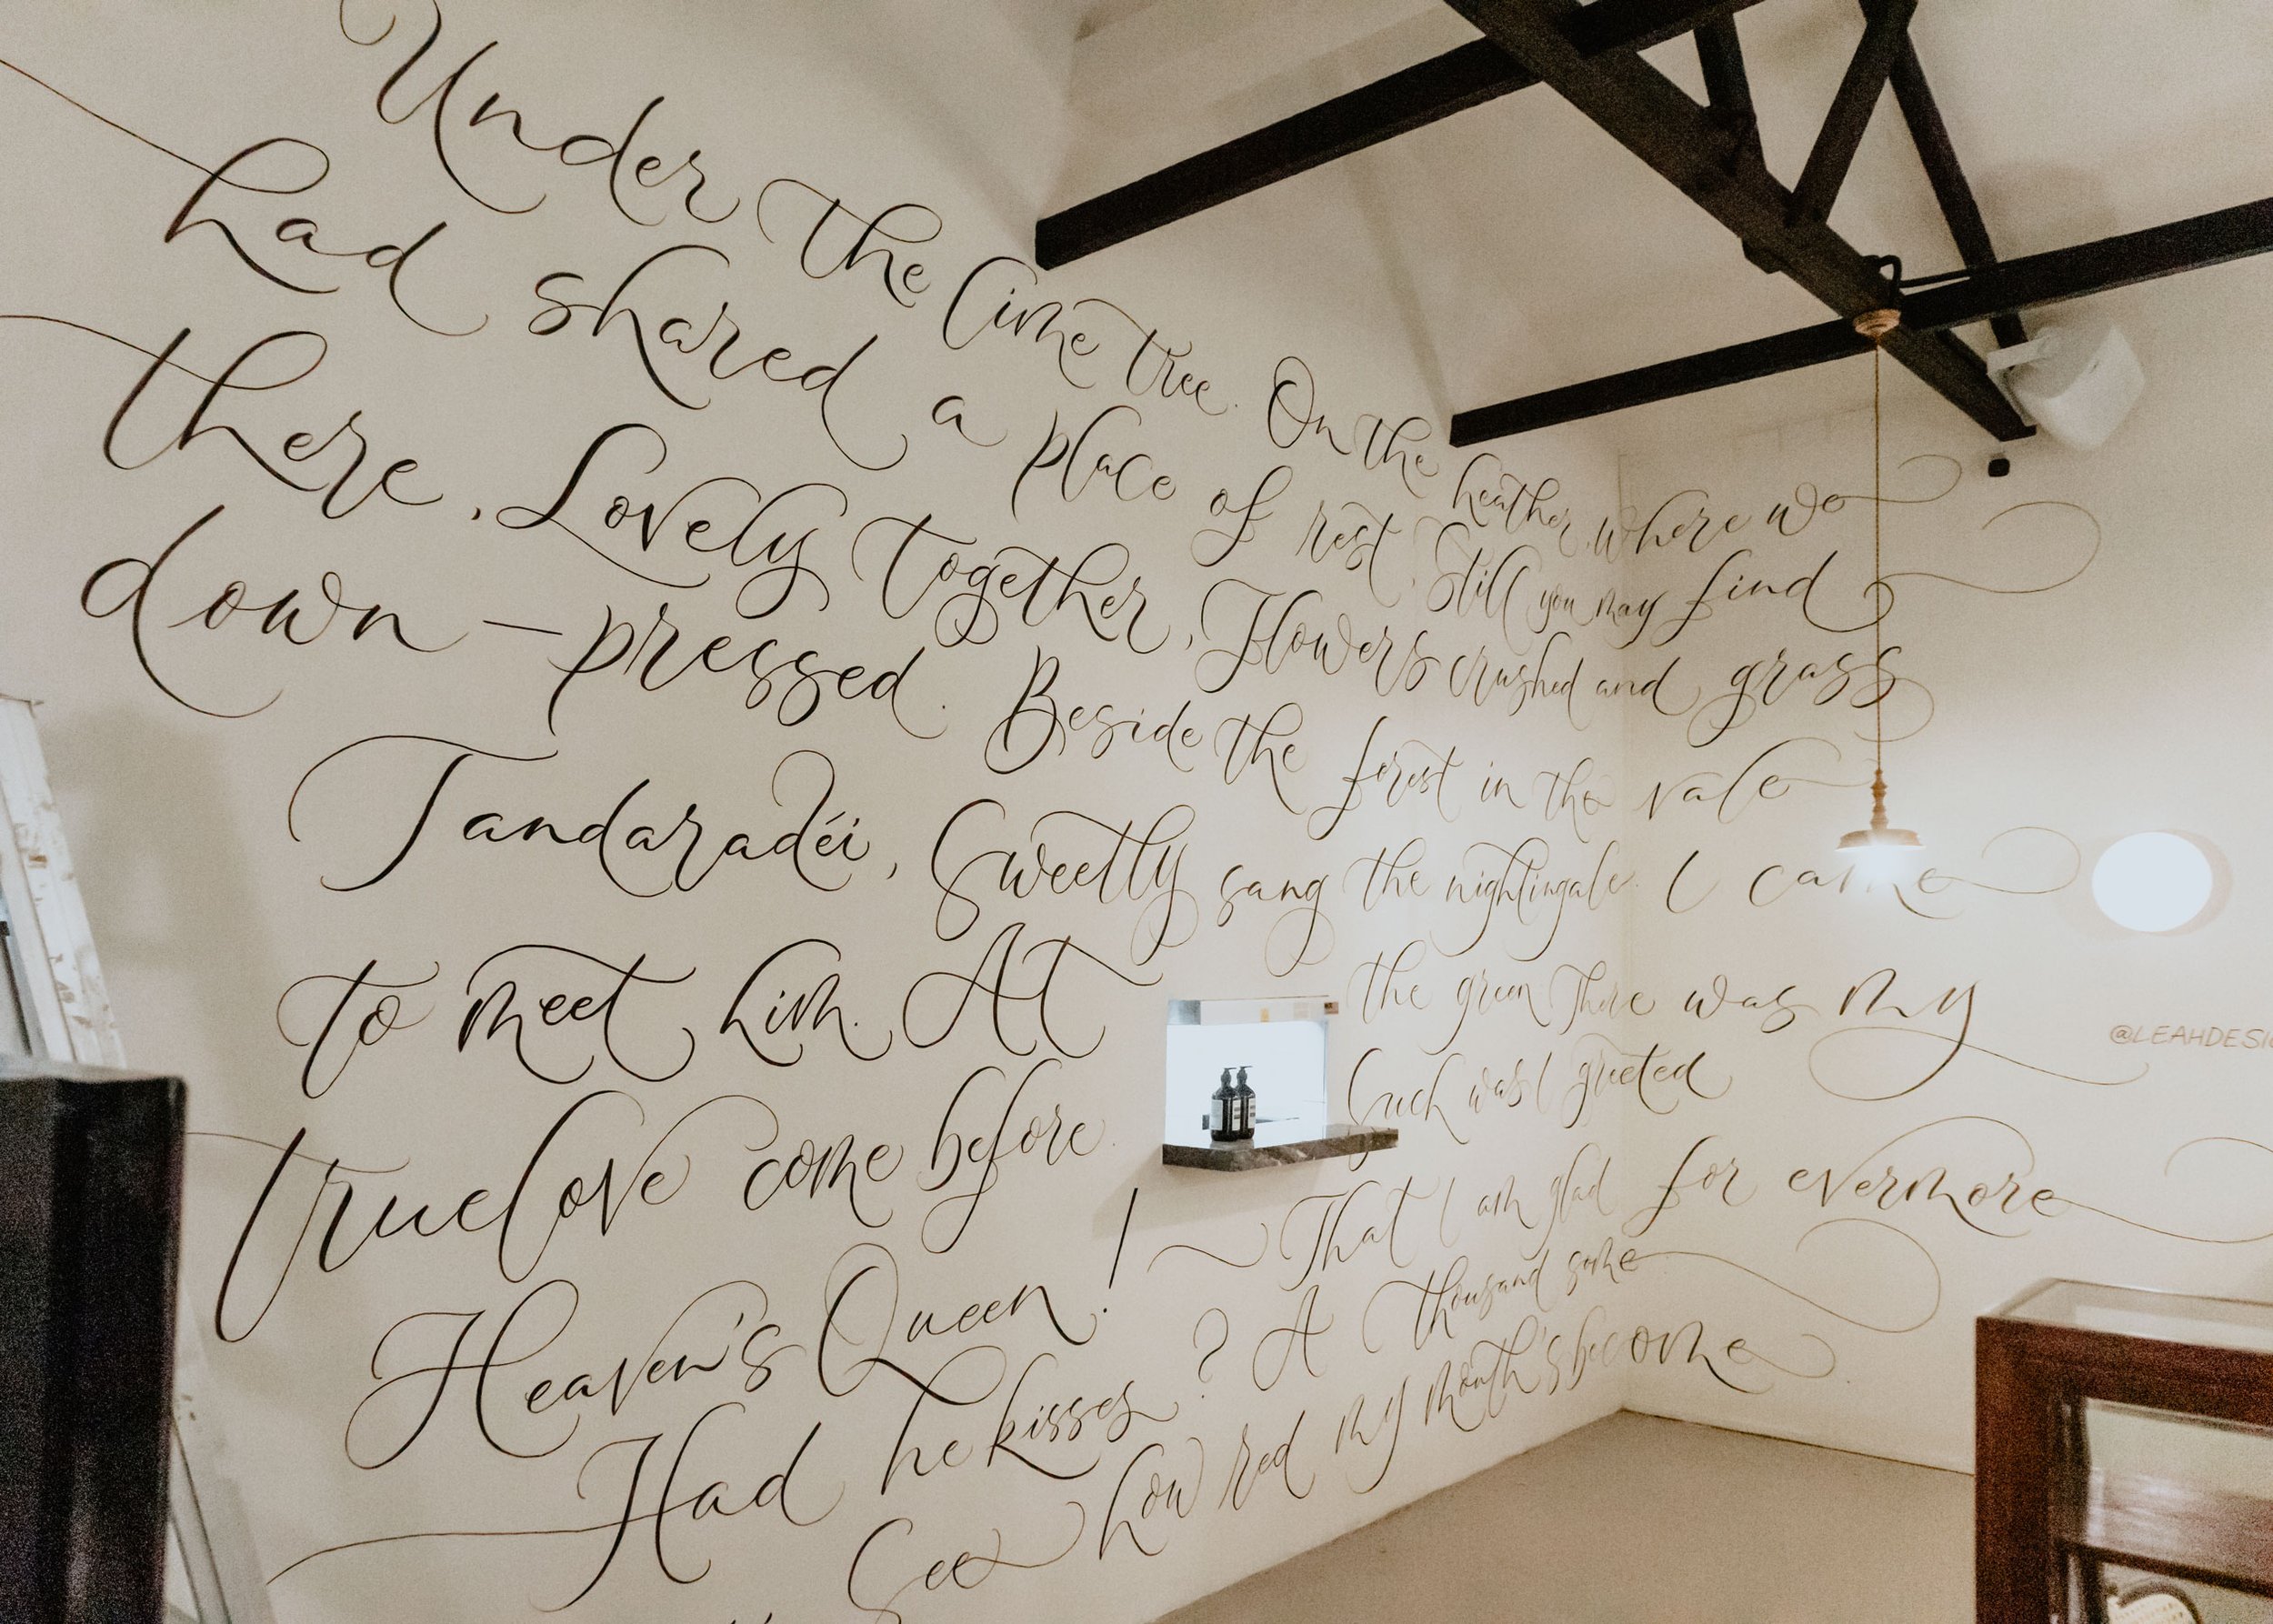 Under the lime tree. On the heather, where we
had shared a place of rest, Still you may find
there, Lovely together, Flowers crushed and grass
down-pressed. Beside the forest in the vale
Tandaradéi, Sweetly sang the nightingale. I came
to meet him. At the green There was my
truelove come before. Such was I greeted
Heaven's Queen! ~ That I am glad for evermore
Had he kisses? A thousand some
See how red my mouth's become
@LEAHDESI